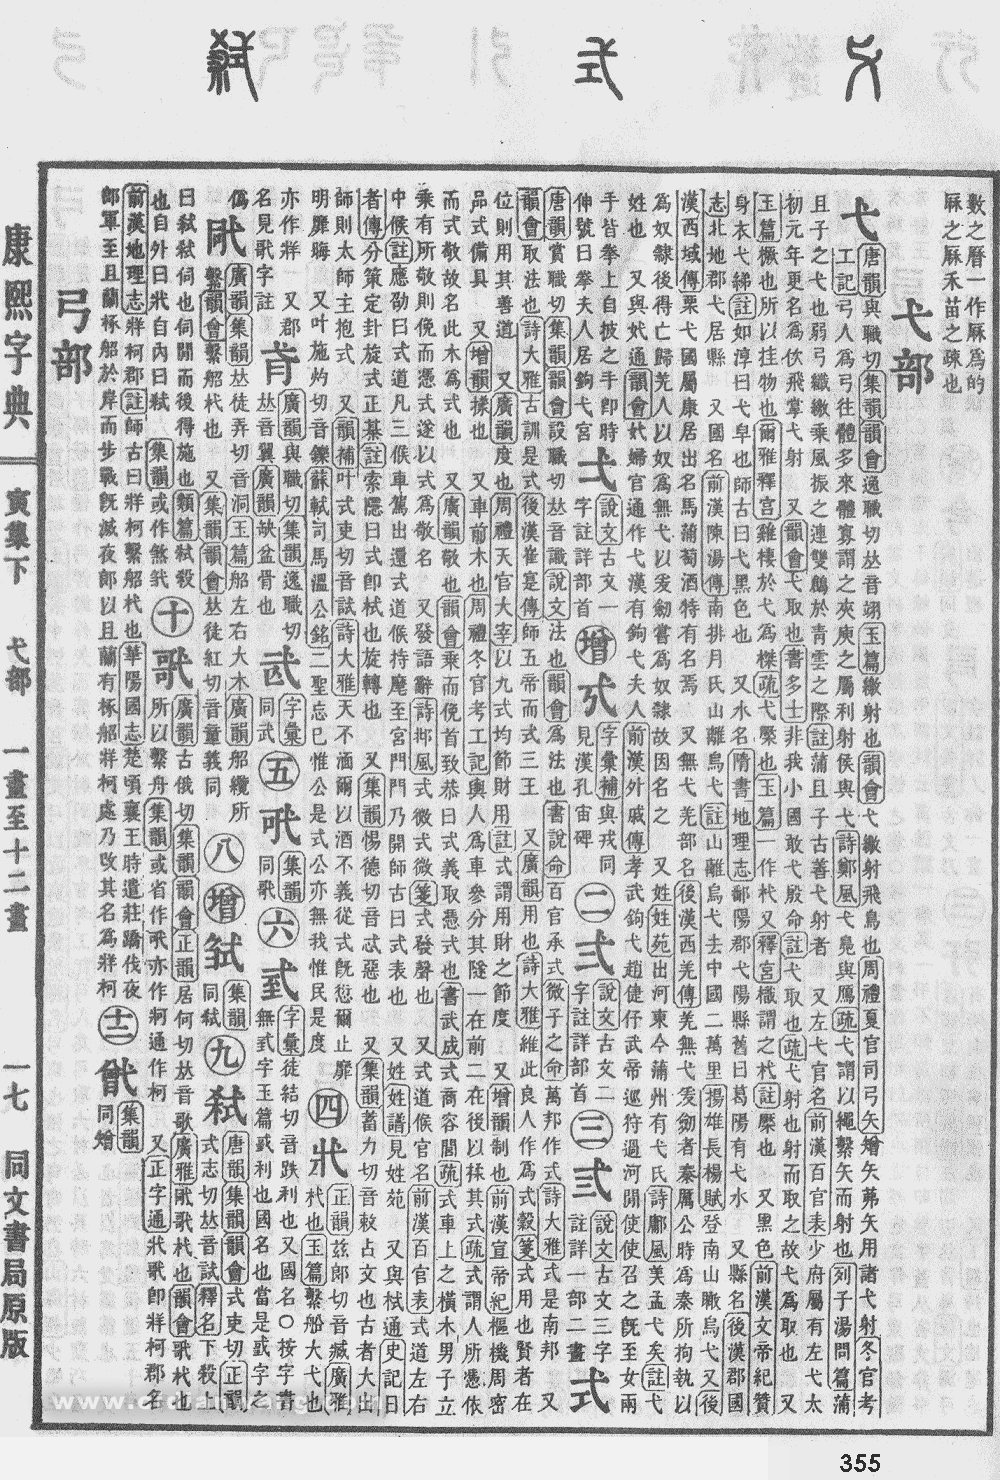 數之曆一作厤爲的
厤之厤禾苗之疎也
弋部
弋
唐韻與職切集韻韻會逸職切𠀤音翊玉篇繳射也韻會弋繳射飛鳥也周禮夏官司弓矢矰矢茀矢用諸弋射冬官考
工記弓人爲弓往體多來體寡謂之夾庾之屬利射侯與弋詩鄭風弋鳧與鴈疏弋謂以繩繫矢而射也列子湯問篇蒲
且子之弋也弱弓纖繳乘風振之連雙鶬於青雲之際註蒲且子古善弋射者 又左弋官名前漢百官表少府屬有左弋太
初元年更名爲佽飛掌弋射 又韻會弋取也書多士非我小國敢弋殷命註弋取也疏弋射也射而取之故弋爲取也 又
玉篇橛也所以挂物也爾雅釋宮雞棲於弋爲榤疏弋橜也玉篇一作杙又釋宮樴謂之杙註橜也 又黑色前漢文帝紀贊
身衣弋綈註如淳曰弋皁也師古曰弋黑色也 又水名隋書地理志鄱陽郡弋陽縣舊曰葛陽有弋水 又縣名後漢郡國
志北地郡弋居縣 又國名前漢陳湯傳南排月氏山離烏弋註山離烏弋去中國二萬里揚雄長楊賦登南山瞰烏弋又後
漢西域傳栗弋國屬康居出名馬蒲萄酒特有名焉 又無弋羌部名後漢西羌傳羌無弋爰劒者秦厲公時爲秦所拘執以
爲奴隸後得亡歸羌人以奴爲無弋以爰劒嘗爲奴隸故因名之 又姓姓苑出河東今蒲州有弋氏詩鄘風美孟弋矣註弋
姓也 又與㚤通韻會㚤婦官通作弋漢有鉤弋夫人前漢外戚傳孝武鉤弋趙倢伃武帝巡狩過河閒使使召之旣至女兩
手皆拳上自披之手卽時
伸號曰拳夫人居鉤弋宮
弌
說文古文一
字註詳部首
增
𢍺
字彙補與戎同
見漢孔宙碑
二
弍
說文古文二
字註詳部首
三
弎
說文古文三字
註詳一部二畫
式
唐韻賞職切集韻韻會設職切𠀤音識說文法也韻會爲法也書說命百官承式微子之命萬邦作式詩大雅式是南邦 又
韻會取法也詩大雅古訓是式後漢崔寔傳師五帝而式三王 又廣韻用也詩大雅維此良人作爲式穀箋式用也賢者在
位則用其善道 又廣韻度也周禮天官大宰以九式均節財用註式謂用財之節度 又增韻制也前漢宣帝紀樞機周密
品式備具 又增韻㨾也 又車前木也周禮冬官考工記輿人爲車參分其隧一在前二在後以揉其式疏式謂人所憑依
而式敬故名此木爲式也 又廣韻敬也韻會乘而俛首致恭曰式義取憑式也書武成式商容閭疏式車上之橫木男子立
乘有所敬則俛而憑式遂以式爲敬名 又發語辭詩邶風式微式微箋式發聲也 又式道候官名前漢百官表式道左右
中候註應劭曰式道凡三候車駕出還式道候持麾至宮門門乃開師古曰式表也 又姓姓譜見姓苑 又與栻通史記日
者傳分策定卦旋式正棊註索隱曰式卽栻也旋轉也 又集韻惕德切音忒惡也 又集韻蓄力切音敕占文也古者大出
師則太師主抱式 又韻補叶式吏切音試詩大雅天不湎爾以酒不義從式旣愆爾止靡
明靡晦 又叶施灼切音鑠蘇軾司馬溫公銘二聖忘已惟公是式公亦無我惟民是度
四
𢍾
正韻茲郎切音臧廣雅
杙也玉篇繫船大弋也
亦作牂 又郡
名見䍧字註
广韻與職切集韻逸職切
𠀤音翼廣韻缺盆骨也
字彙
同武
五
集韻
同䍧
六
字彙徒結切音跌利也又國名○按字書
無字玉篇或利也國名也當是或字之
廣韻集韻𠀤徒弄切音洞玉篇船左右大木廣韻船纜所
繫韻會繫船杙也 又集韻韻會𠀤徒紅切音童義同
八
增
集韻
同弒
九
弒
唐韻集韻韻會式吏切正韻
式志切𠀤音試釋名下殺上
曰弒弒伺也伺閒而後得施也類篇弒殺
也自外曰戕自內曰弒 集韻或作煞
十
廣韻古俄切集韻韻會正韻居何切𠀤音歌廣雅䍧杙也韻會杙也
所以繫舟集韻或省作亦作牁通作柯 又正字通牂卽牂柯郡名
前漢地理志牂柯郡註師古曰牂柯繫船杙也華陽國志楚頃襄王時遣莊蹻伐夜
郎軍至且蘭椓船於岸而步戰旣滅夜郎以且蘭有椓船牂柯處乃改其名爲牂柯
十二
集韻
同矰
弓部
康熙字典
寅集下 弋部 一畫至十二畫
一七 同文書局原版
355